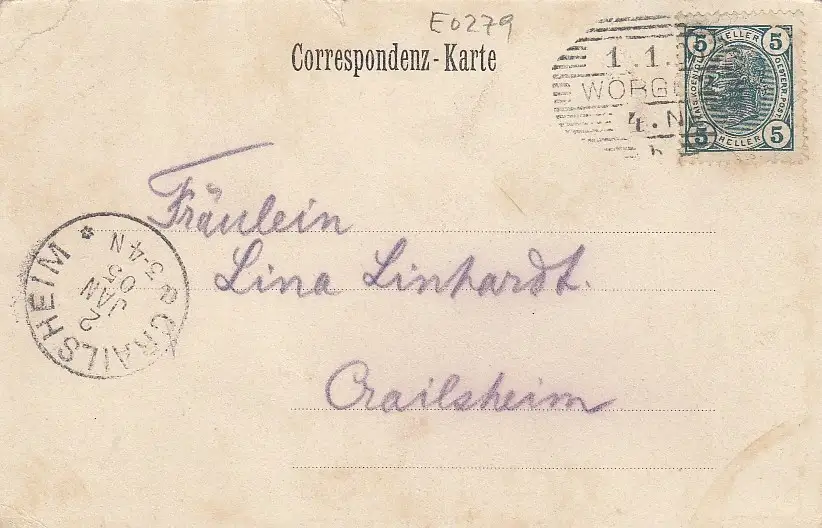 E0279
Correspondenz-Karte
1.1.
WÖRGL
4.N
5 HELLER 5
5 HELLER 5
Fräulein
Lina Linhardt.
Crailsheim
CRAILSHEIM
2
JAN
05
3-4 N